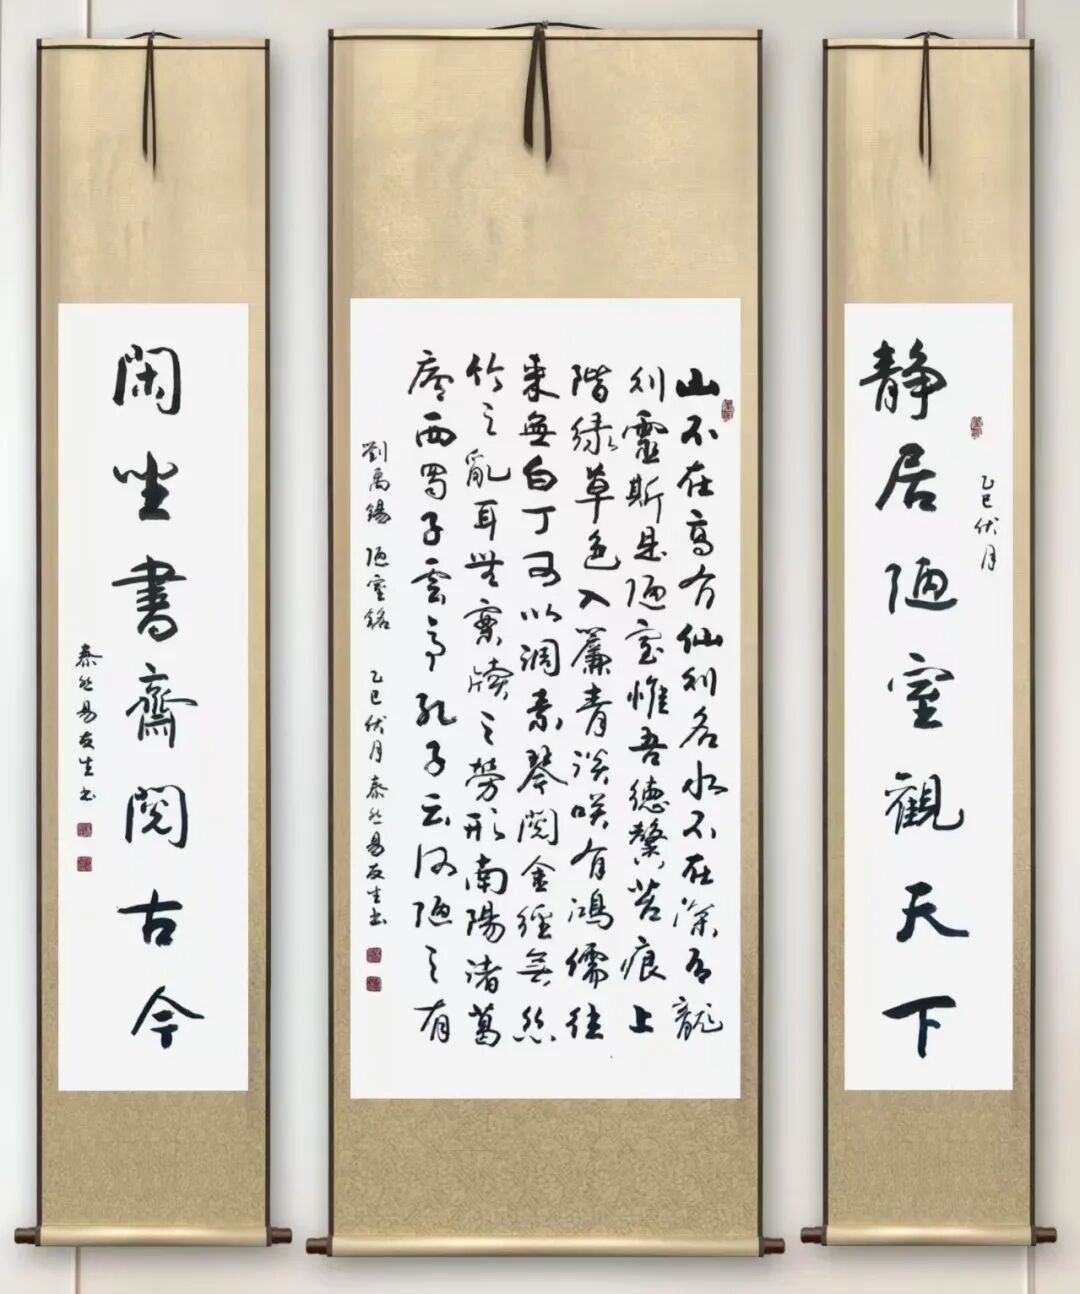 乙巳伏月
静居陋室觀天下
山不在高有仙则名水不在深有龍
则靈斯是陋室惟吾德馨苔痕上
階绿草色入簾青谈笑有鴻儒往
来無白丁可以调素琴閱金經無丝
竹之亂耳無案牍之劳形南陽诸葛
廬西蜀子雲亭孔子云何陋之有
劉禹錫 陋室銘 乙巳伏月 泰然易友生书
閑坐書齋閱古今
泰然易友生书